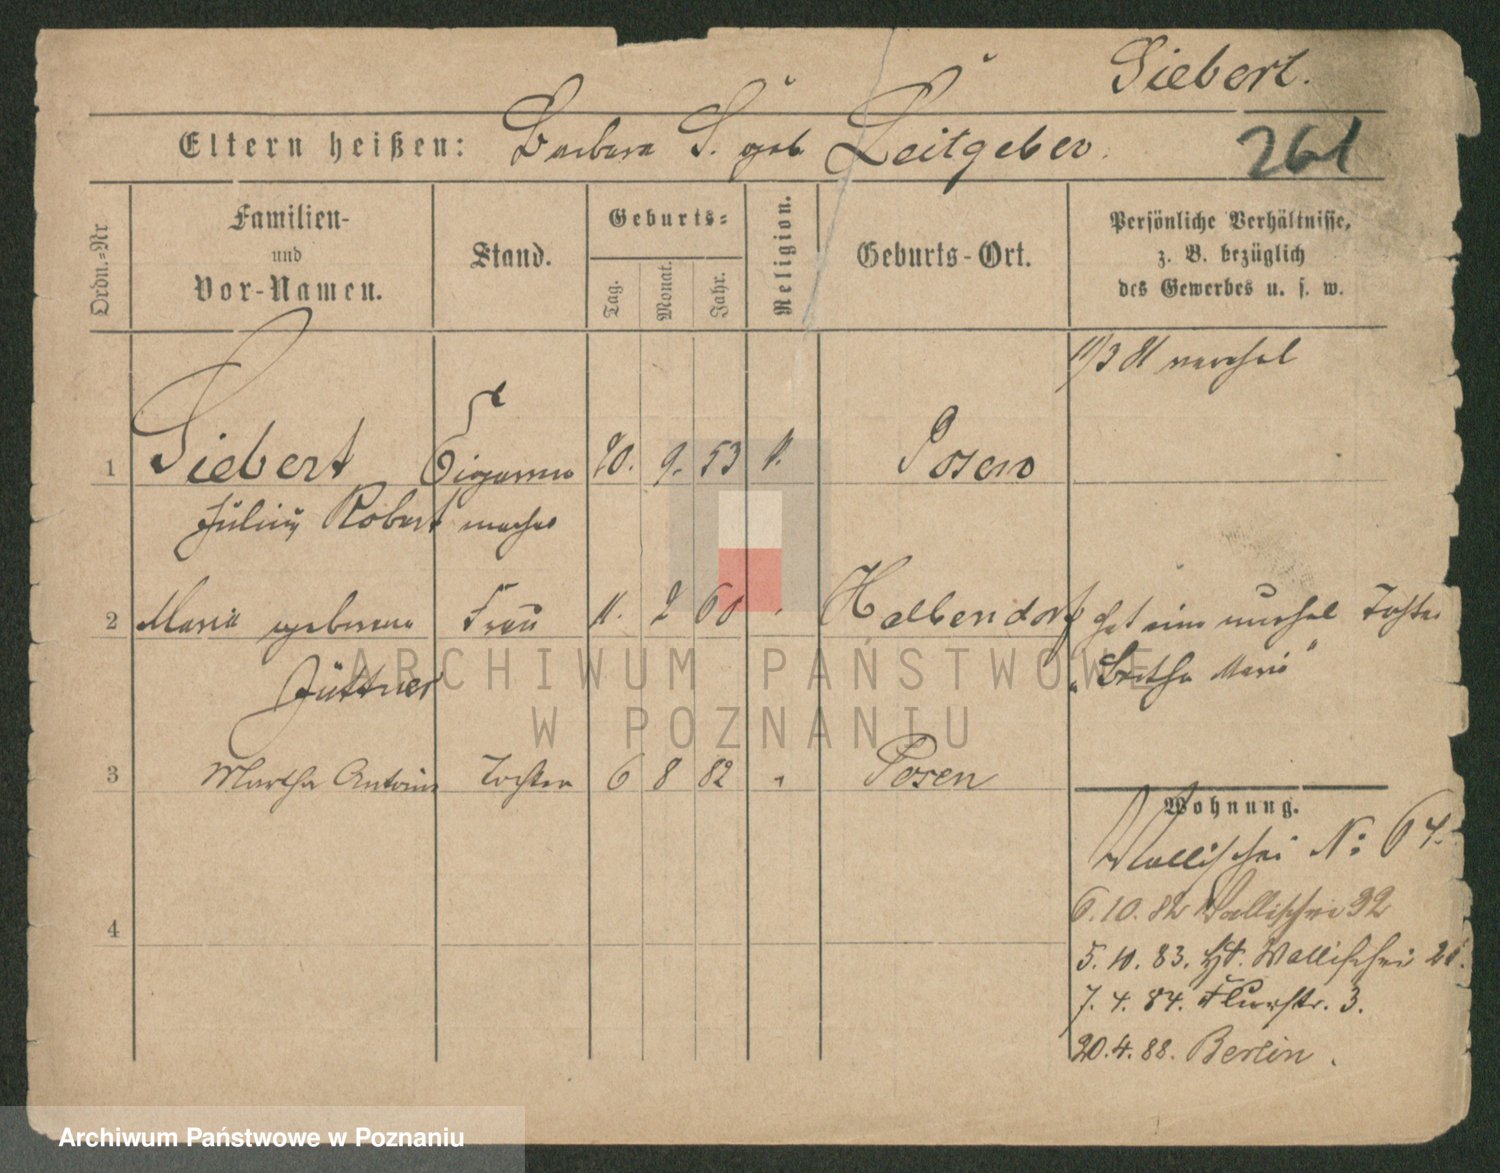 Siebert.
Eltern heißen: Barbara S. geb Leitgeber.
261
Ordn.-Nr
Familien-
und
Vor-Namen.
Stand.
Geburts-
Tag.
Monat.
Jahr.
Religion.
Geburts-Ort.
Persönliche Verhältnisse,
z. B. bezüglich
des Gewerbes u. s. w.
11/3 81 verehel
1 Siebert Cigarren 20. 9. 53 k. Posen
Julius Robert macher
2 Maria geborene Frau 11. 2 60 " Halbendorf hat eine unehel Tochter
Jüttner
Marie"
3 Martha Antonie Tochter 6 8 82 " Posen
Wohnung.
Wallischei No: 67.
6.10.82 Wallischei 32
4
5.10.83. Wallischei
7.4.84. Flurstr. 3.
20.4.88. Berlin.
ARCHIWUM PAŃSTWOWE
W POZNANIU
Archiwum Państwowe w Poznaniu